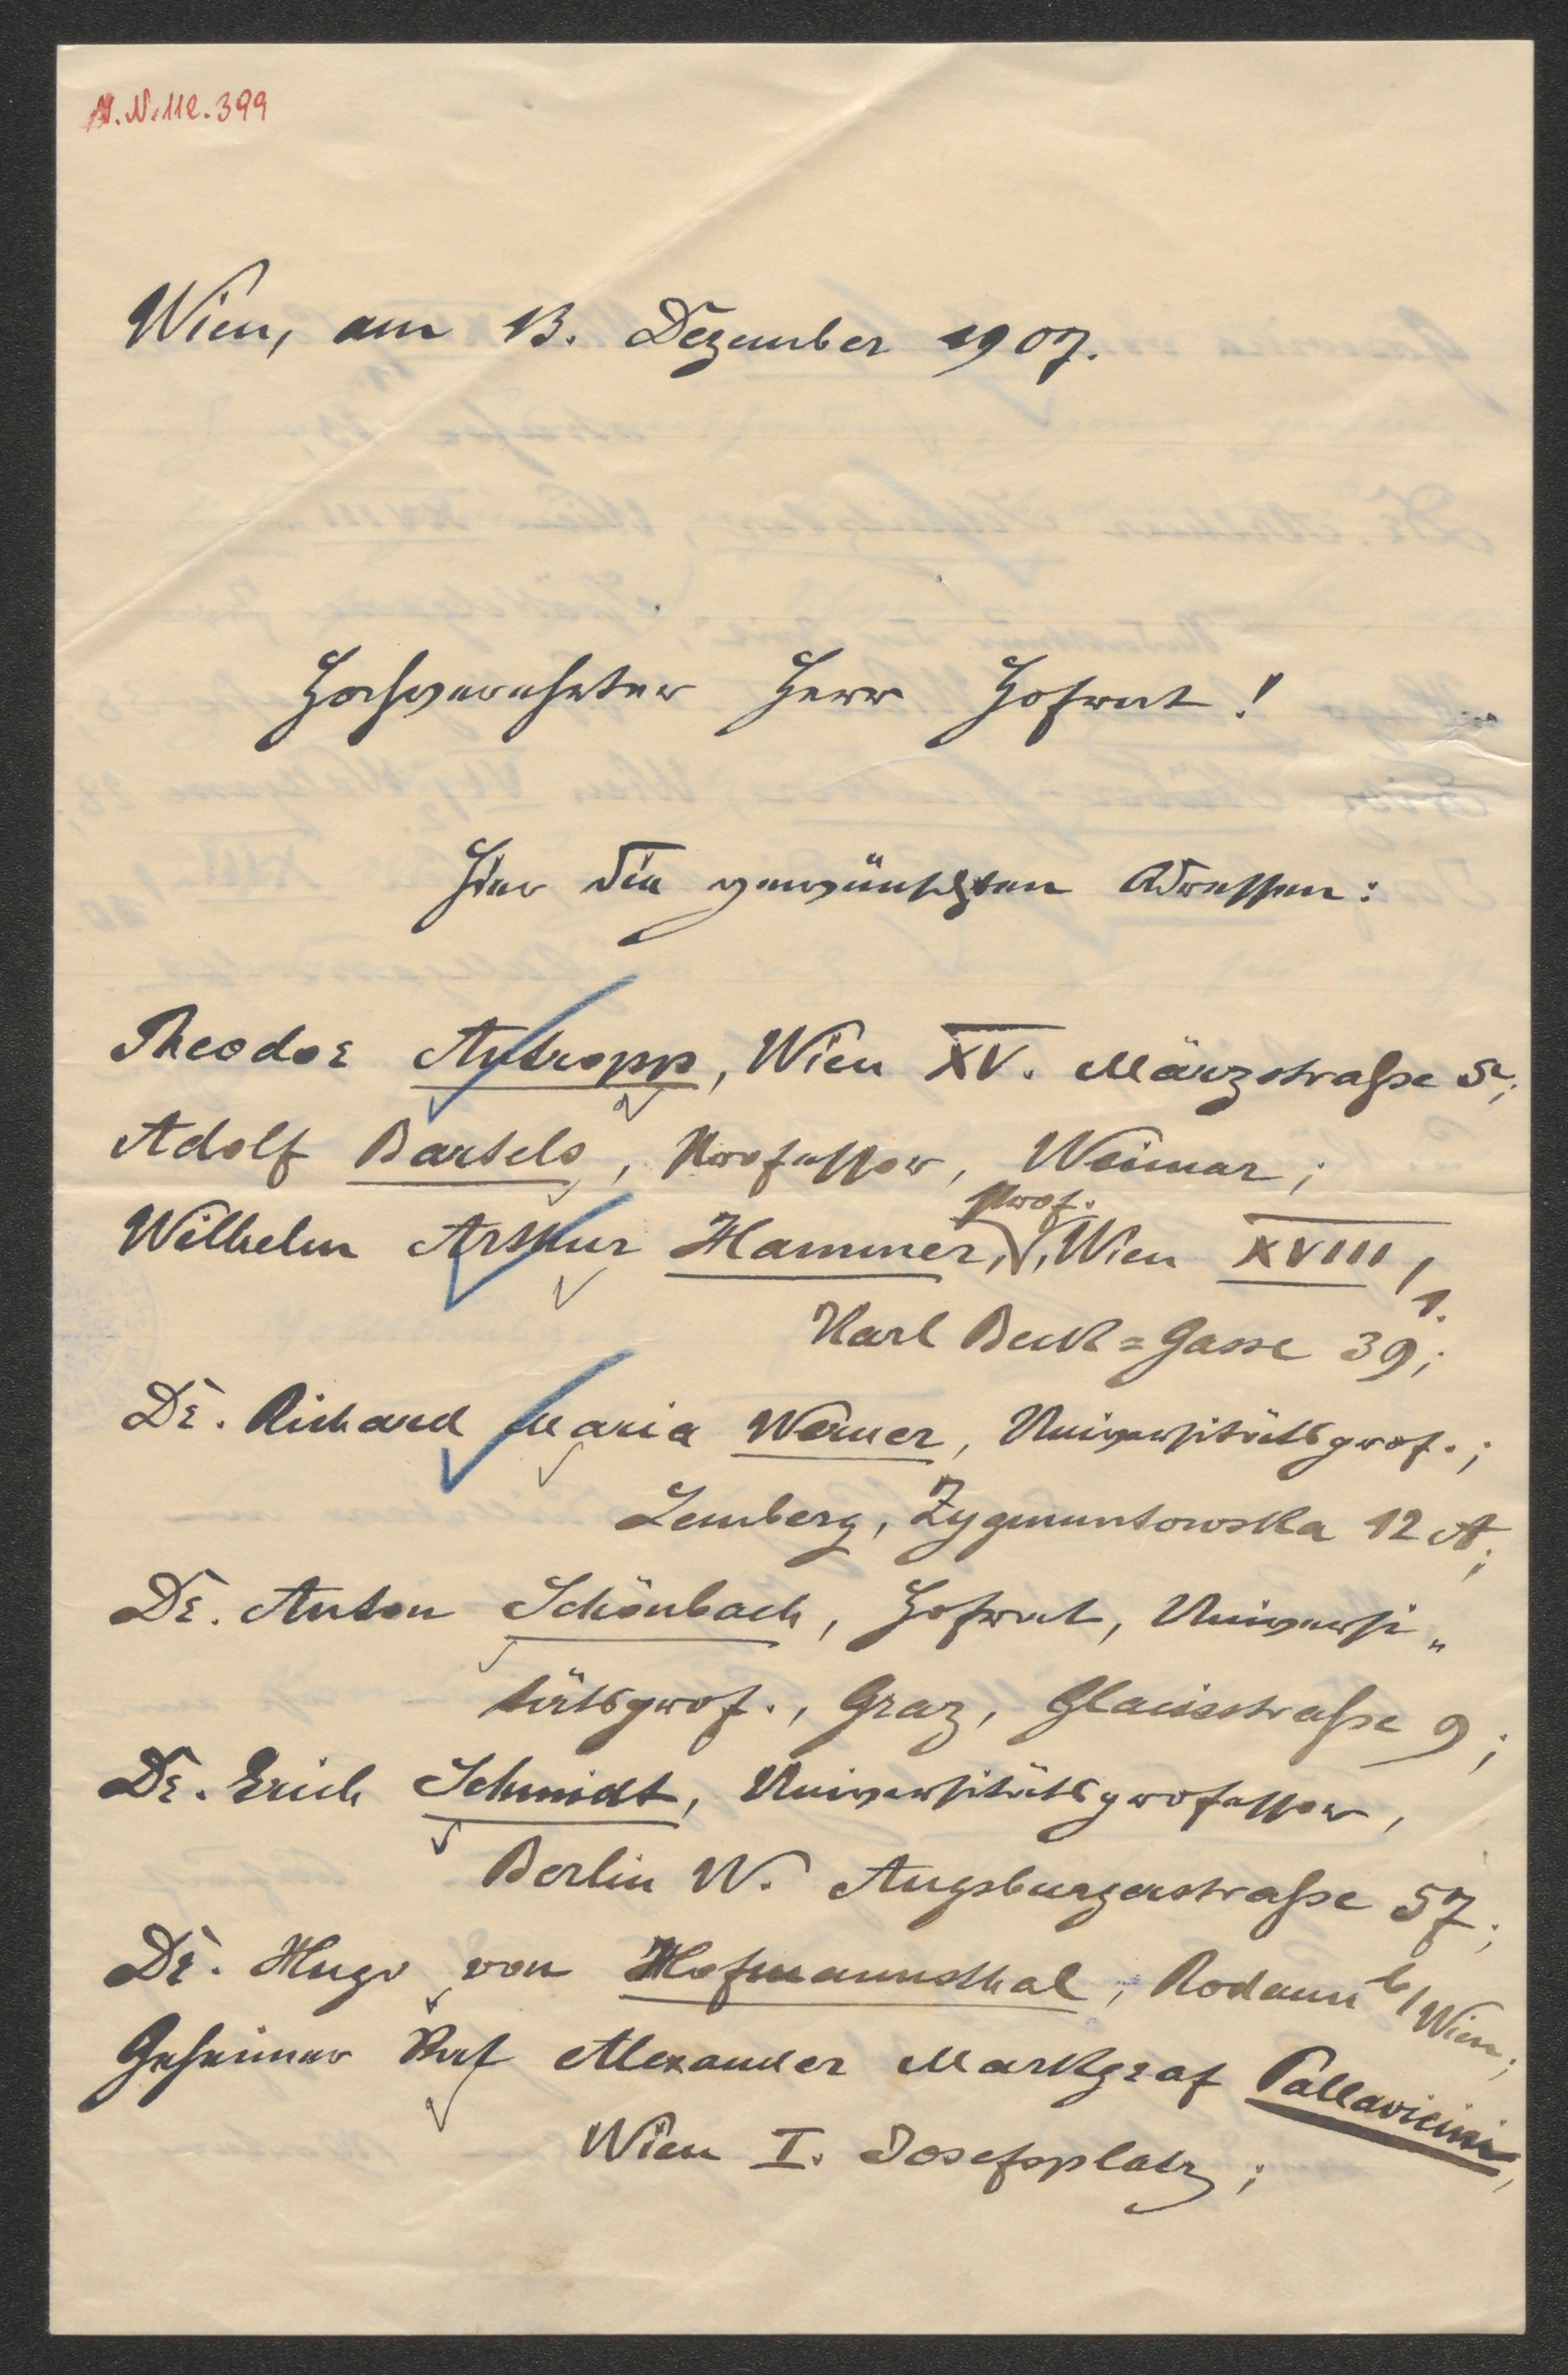 N.N.112.399
Wien, am 13. Dezember 1907.
Hochverehrter Herr Hofrat!
Hier die gewünschten Adressen:
Theodor Antropp, Wien XV. Märzstraße 5;
Adolf Bartels, Professor, Weimar;
Prof.
Wilhelm Arthur Hammer, Wien XVIII/1.
Karl Beck=Gasse 39;
Dr. Richard Maria Werner, Universitätsprof.;
Lemberg, Zygmuntowska 12 A;
Dr. Anton Schönbach, Hofrat, Universi„
tätsprof., Graz, Glacisstraße 9;
Dr. Erich Schmidt, Universitätsprofessor,
Berlin W. Augsburgerstraße 57;
Dr. Hugo von Hofmannsthal, Rodaun b/Wien;
Geheimer Rat Alexander Markgraf Pallavicini,
Wien I. Josefsplatz;